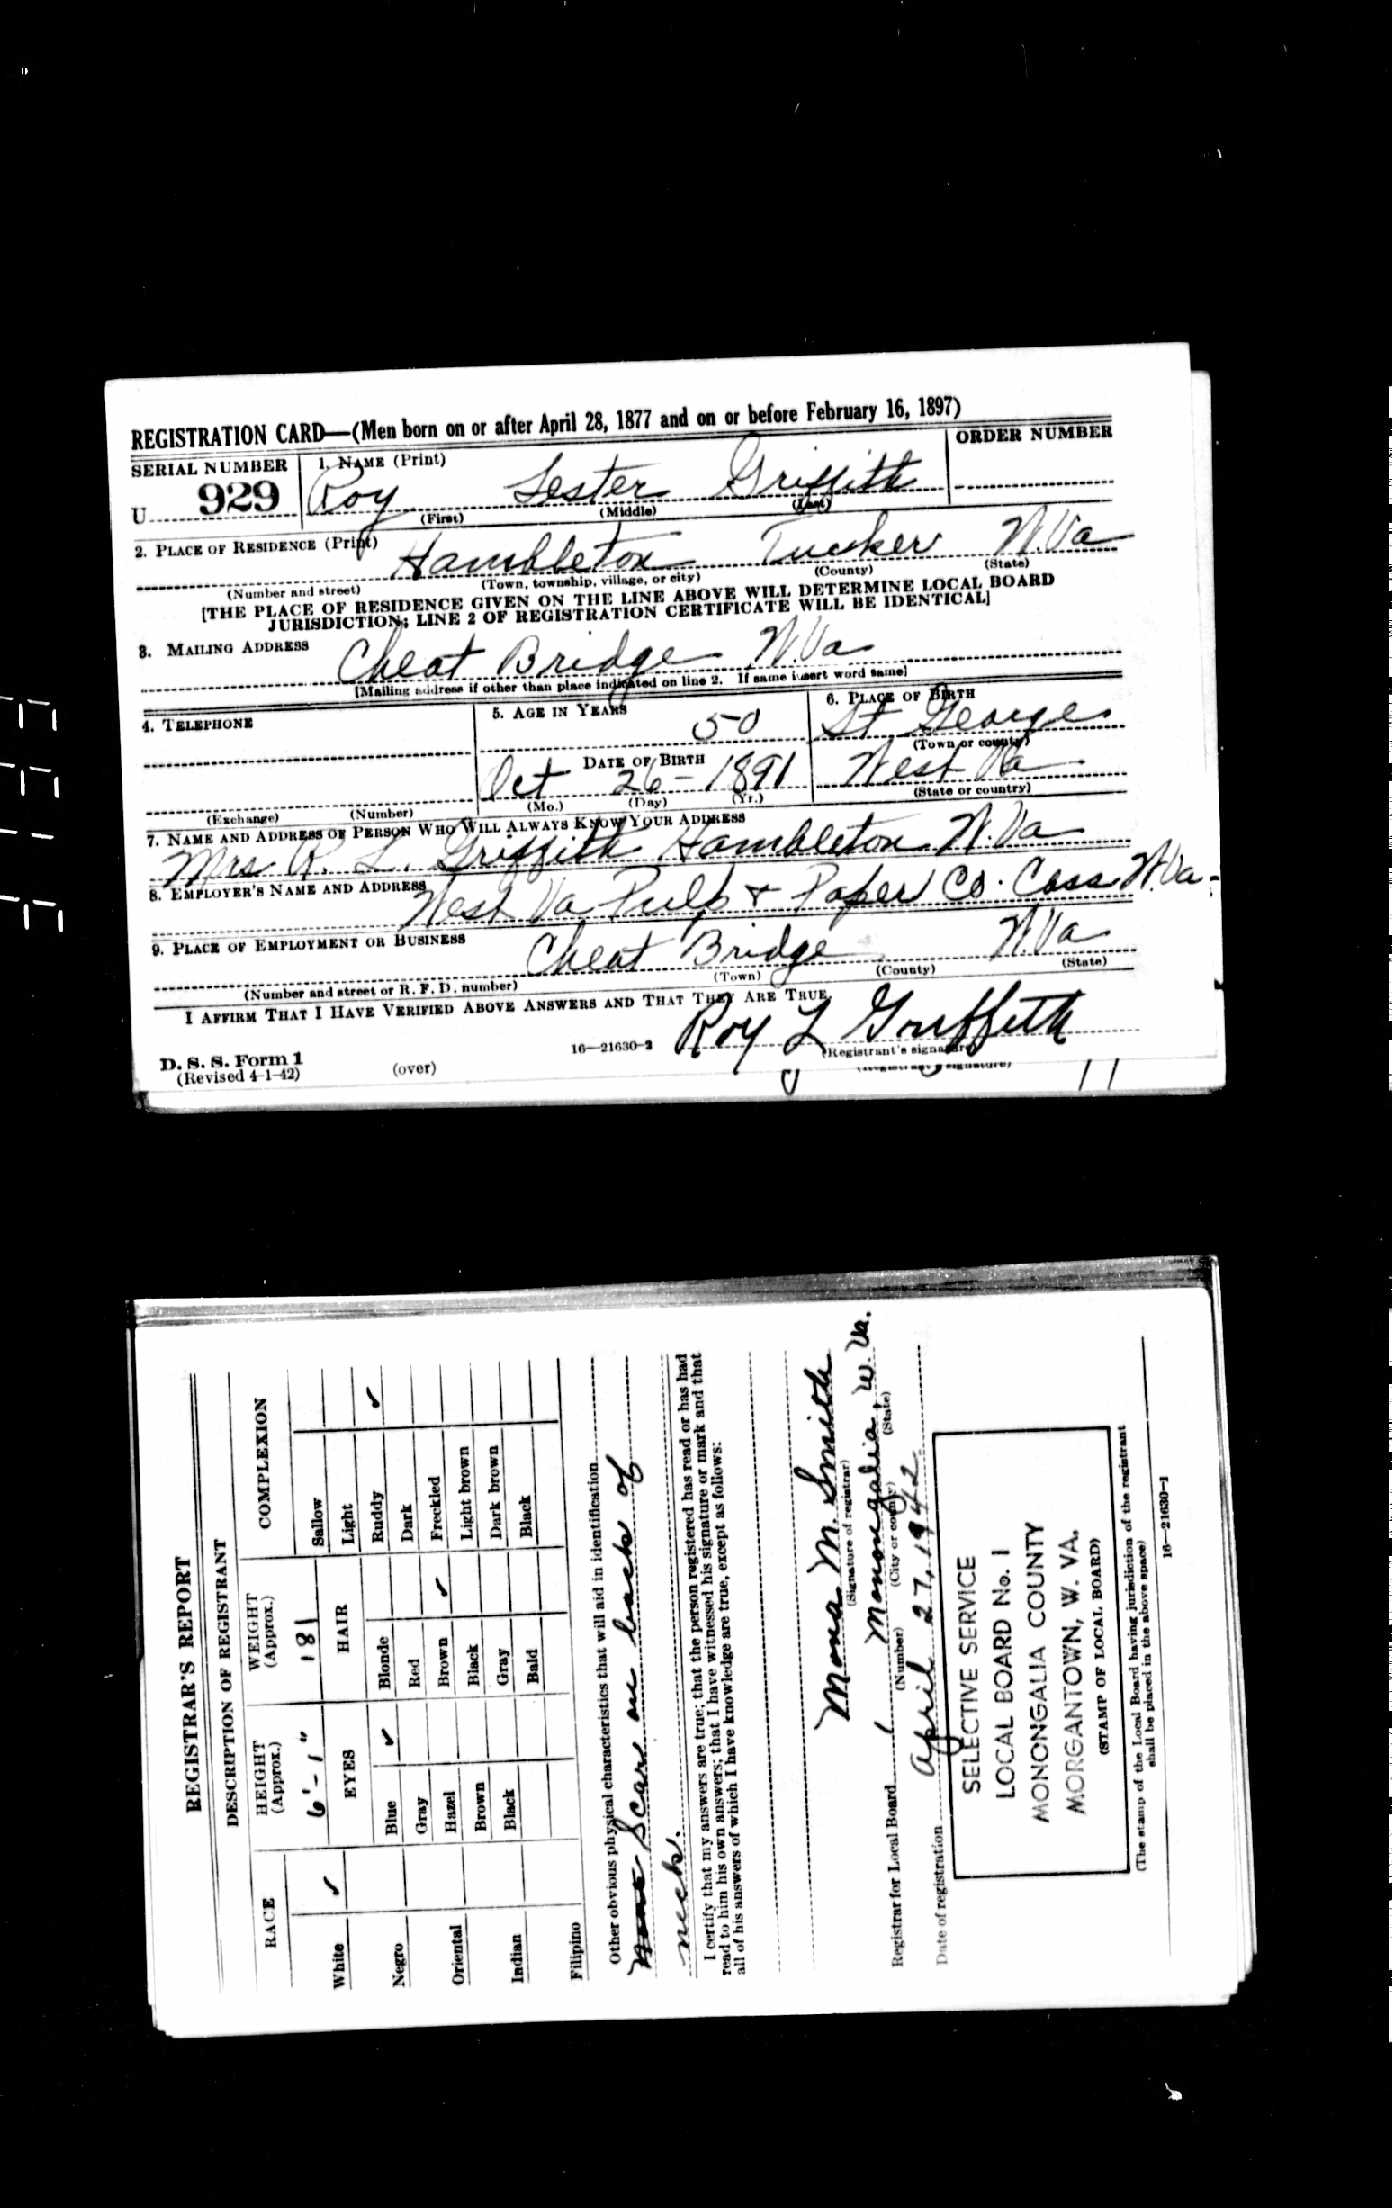 REGISTRATION CARD—(Men born on or after April 28, 1877 and on or before February 16, 1897)
SERIAL NUMBER 1. NAME (Print) ORDER NUMBER
U 929 Roy Lester Griffith
(First) (Middle) (Last)
2. PLACE OF RESIDENCE (Print)
Hambleton Tucker W.Va
(Number and street) (Town, township, village, or city) (County) (State)
[THE PLACE OF RESIDENCE GIVEN ON THE LINE ABOVE WILL DETERMINE LOCAL BOARD
JURISDICTION; LINE 2 OF REGISTRATION CERTIFICATE WILL BE IDENTICAL]
3. MAILING ADDRESS
Cheat Bridge W.Va
[Mailing address if other than place indicated on line 2. If same insert word same]
4. TELEPHONE 5. AGE IN YEARS 6. PLACE OF BIRTH
50 St George
(Town or county)
DATE OF BIRTH
Oct 26 - 1891 West Va
(Exchange) (Number) (Mo.) (Day) (Yr.) (State or country)
7. NAME AND ADDRESS OF PERSON WHO WILL ALWAYS KNOW YOUR ADDRESS
Mrs R. L. Griffith Hambleton W.Va
8. EMPLOYER'S NAME AND ADDRESS
West Va Pulp & Paper Co. Cass W.Va-
9. PLACE OF EMPLOYMENT OR BUSINESS
Cheat Bridge W.Va
(Number and street or R. F. D. number) (Town) (County) (State)
I AFFIRM THAT I HAVE VERIFIED ABOVE ANSWERS AND THAT THEY ARE TRUE.
Roy L Griffith
D. S. S. Form 1 16—21630-2 (Registrant's signature)
(Revised 4-1-42) (over)
(Registrant's signature)
REGISTRAR'S REPORT
DESCRIPTION OF REGISTRANT
RACE HEIGHT (Approx.) WEIGHT (Approx.) COMPLEXION
6'-1" 181
EYES HAIR
White ✓ Sallow
Light
Blue ✓ Blonde Ruddy ✓
Negro Gray Red Dark
Hazel Brown ✓ Freckled
Oriental Brown Black Light brown
Black Gray Dark brown
Indian Bald Black
Filipino
Other obvious physical characteristics that will aid in identification
None Scar on back of
neck.
I certify that my answers are true; that the person registered has read or has had
read to him his own answers; that I have witnessed his signature or mark and that
all of his answers of which I have knowledge are true, except as follows:
Mona M. Smith
(Signature of registrar)
Registrar for Local Board 1 Monongalia, W. Va.
(Number) (City or county) (State)
Date of registration April 27, 1942
SELECTIVE SERVICE
LOCAL BOARD No. 1
MONONGALIA COUNTY
MORGANTOWN, W. VA.
(STAMP OF LOCAL BOARD)
(The stamp of the Local Board having jurisdiction of the registrant
shall be placed in the above space)
16—21630-1